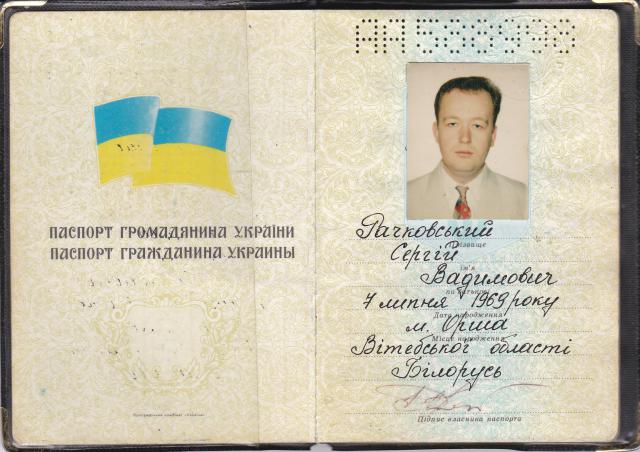 ПАСПОРТ ГРОМАДЯНИНА УКРАЇНИ
ПАСПОРТ ГРАЖДАНИНА УКРАИНЫ
Рачковський
Прізвище
Сергій
Ім'я
Вадимович
по батькові
7 липня 1969 року
Дата народження
м. Орша
Місце народження
Вітебської області
Білорусь
Підпис власника паспорта